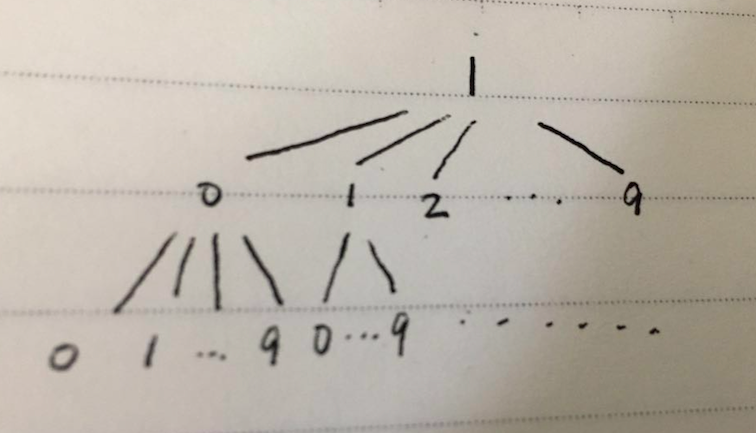 1
0 1 2 .... 9
0 1 ... 9 0 ... 9 .......